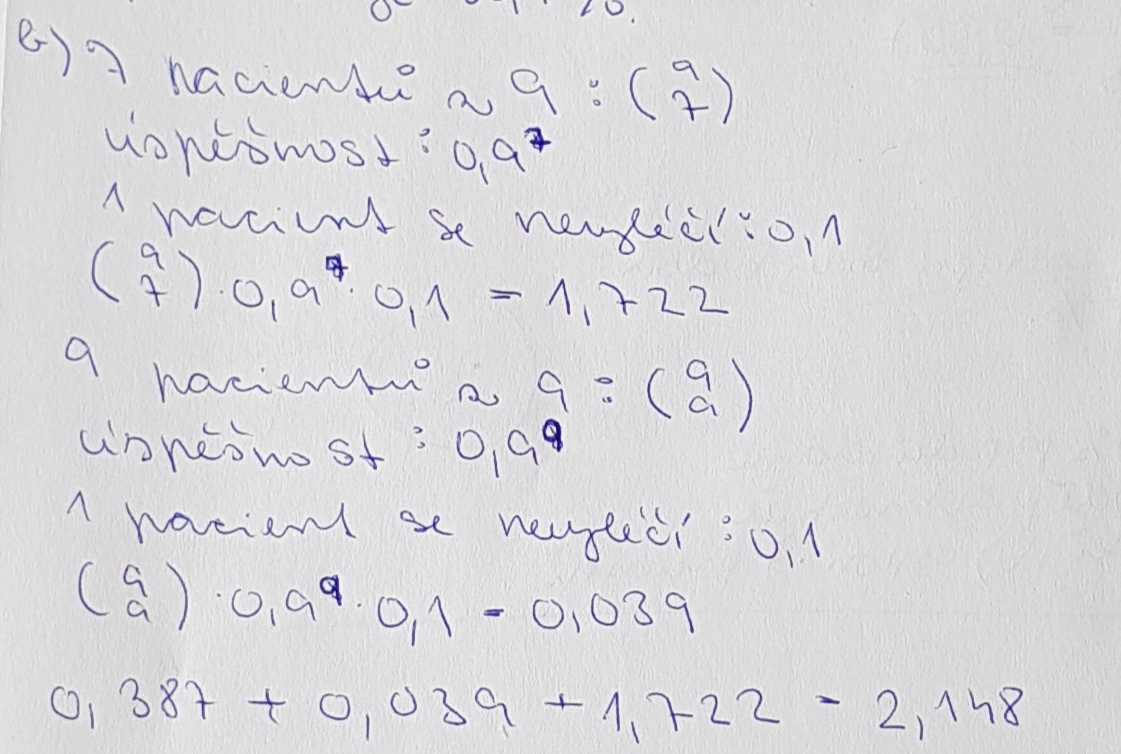 b) 7 pacientů z 9 : (9 7)
úspěšnost : 0,9^7
1 pacient se nevyléčí : 0,1
(9 7) · 0,9^7 · 0,1 = 1,722
9 pacientů z 9 : (9 9)
úspěšnost : 0,9^9
1 pacient se nevyléčí : 0,1
(9 9) · 0,9^9 · 0,1 = 0,039
0,387 + 0,039 + 1,722 = 2,148